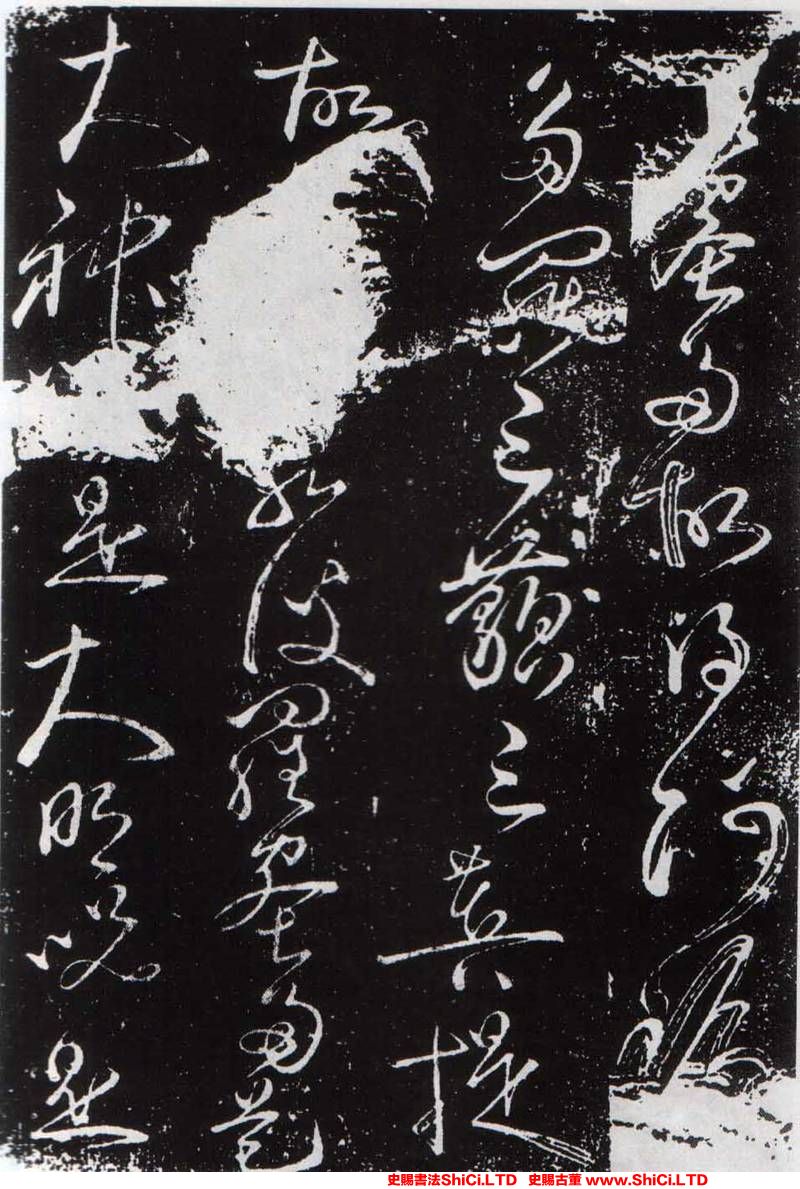 蜜多故得阿耨
多羅三藐三菩提
故若波羅蜜多是
大神是大明咒是
史賜書法ShiCi.LTD 史賜古董 www.ShiCi.LTD